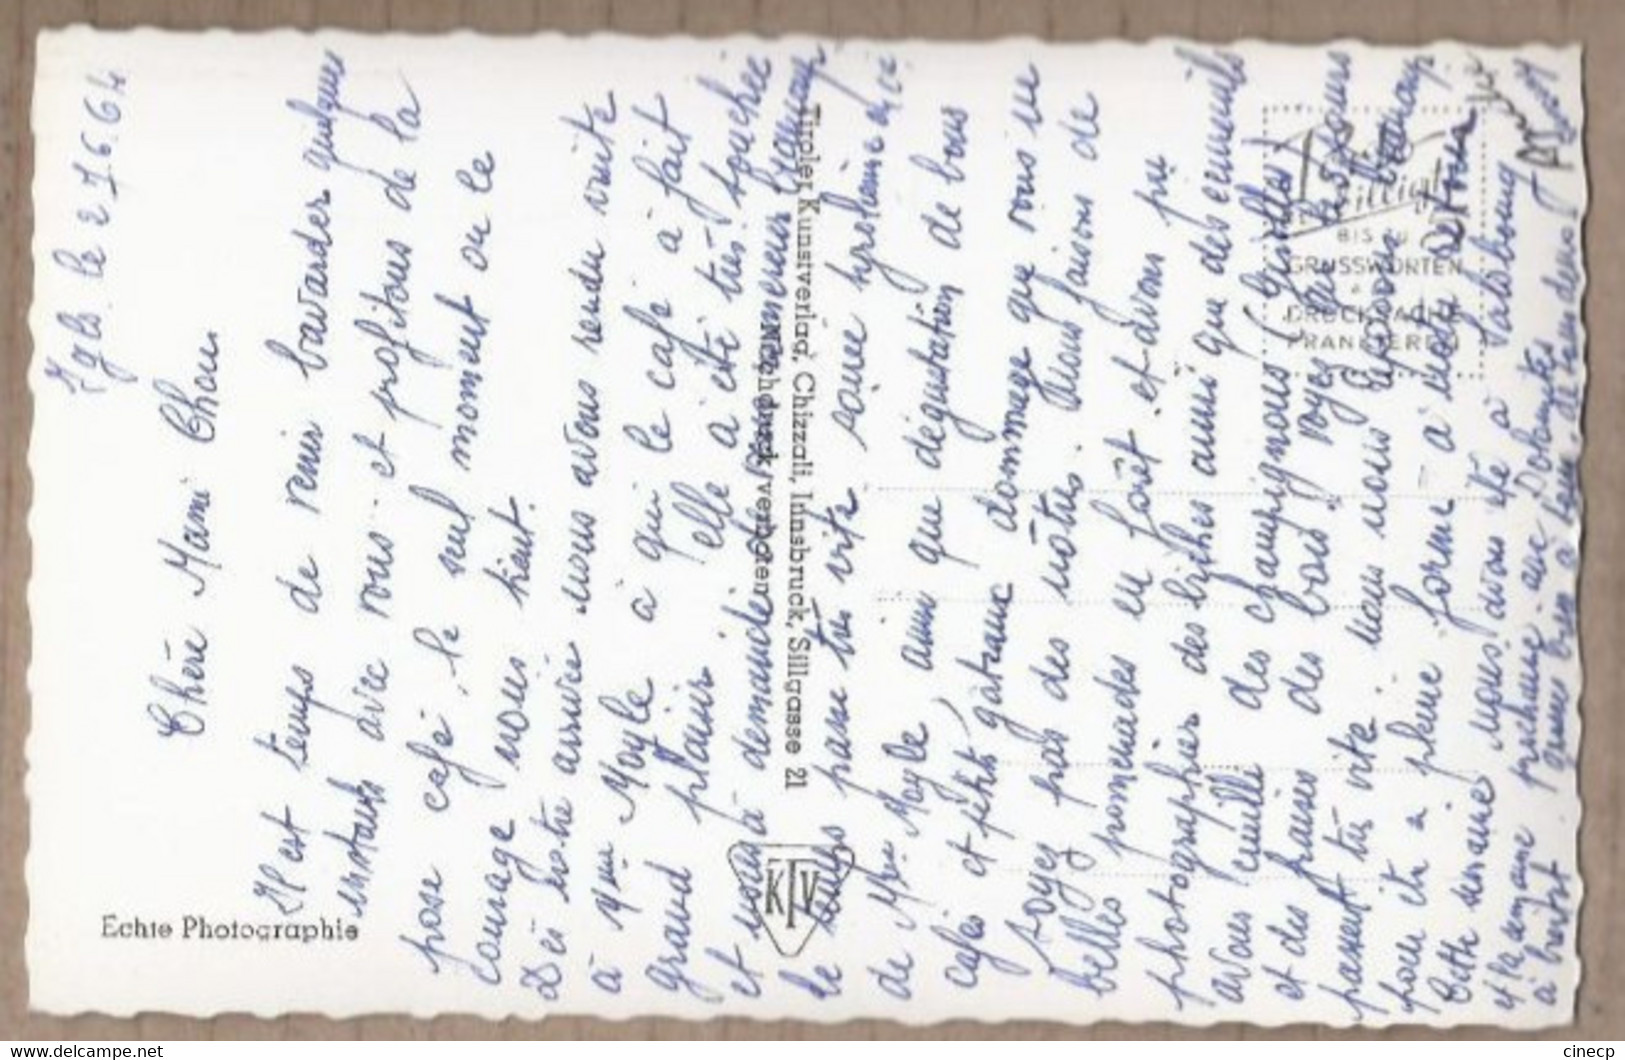 Igls le 27.6.64
Chère Mami Chou
Il est temps de venir bavarder quelques
instants avec vous et profitons de la
pose café, le seul moment ou le
courage nous tient.
Dès notre arrivée nous avons rendu visite
à Mme Moyle à qui le café à fait
grand plaisir elle à été très touchée
et nous a demandé de vous remercier beaucoup
le temps passe très vite soirée
de Mme Moyle ainsi que dégustation de bons
cafés et petits gateaux dommage que vous ne
soyez pas des nôtres. Nous faisons de
belles promenades en forêt et avons pu
photographier des biches ainsi que des écureuils
avons cueilli des champignons
et des fraises des bois. Voyez les jours
passent très vite nous nous reposons beaucoup
pour être a pleine forme à notre retour
Cette semaine nous avons été à Salzbourg
et la semaine prochaine aux Dolomites
à bientôt
Echte Photographie
Tiroler Kunstverlag, Chizzali, Innsbruck, Sillgasse 21
Nachdruck verboten
KTV
BIS ZU 5
GRUSSWORTEN
ALS
DRUCKSACHE
FRANKIEREN
cinecp
www.delcampe.net